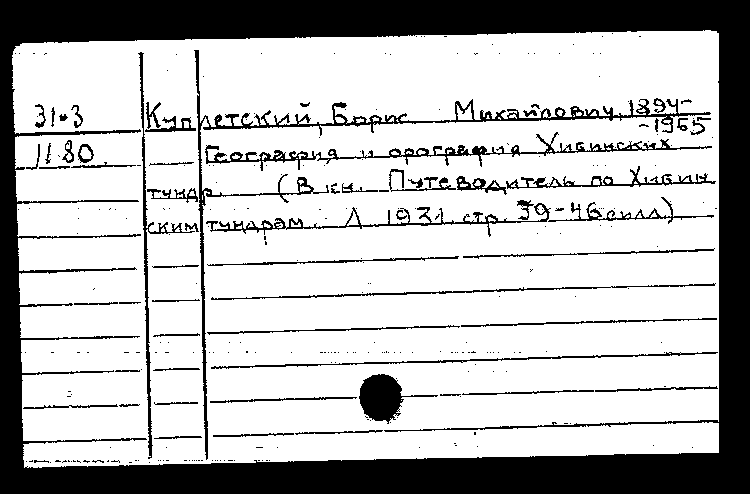 31-3 Куплетский, Борис Михайлович, 1894-
-1965
1180. География и орография Хибинских
тундр. (В кн. Путеводитель по Хибин
ским тундрам. Л 1931. стр. 39-46 с илл.)